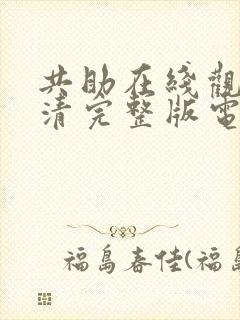 共助在綫觀
清完整版電
福島春佳(福島